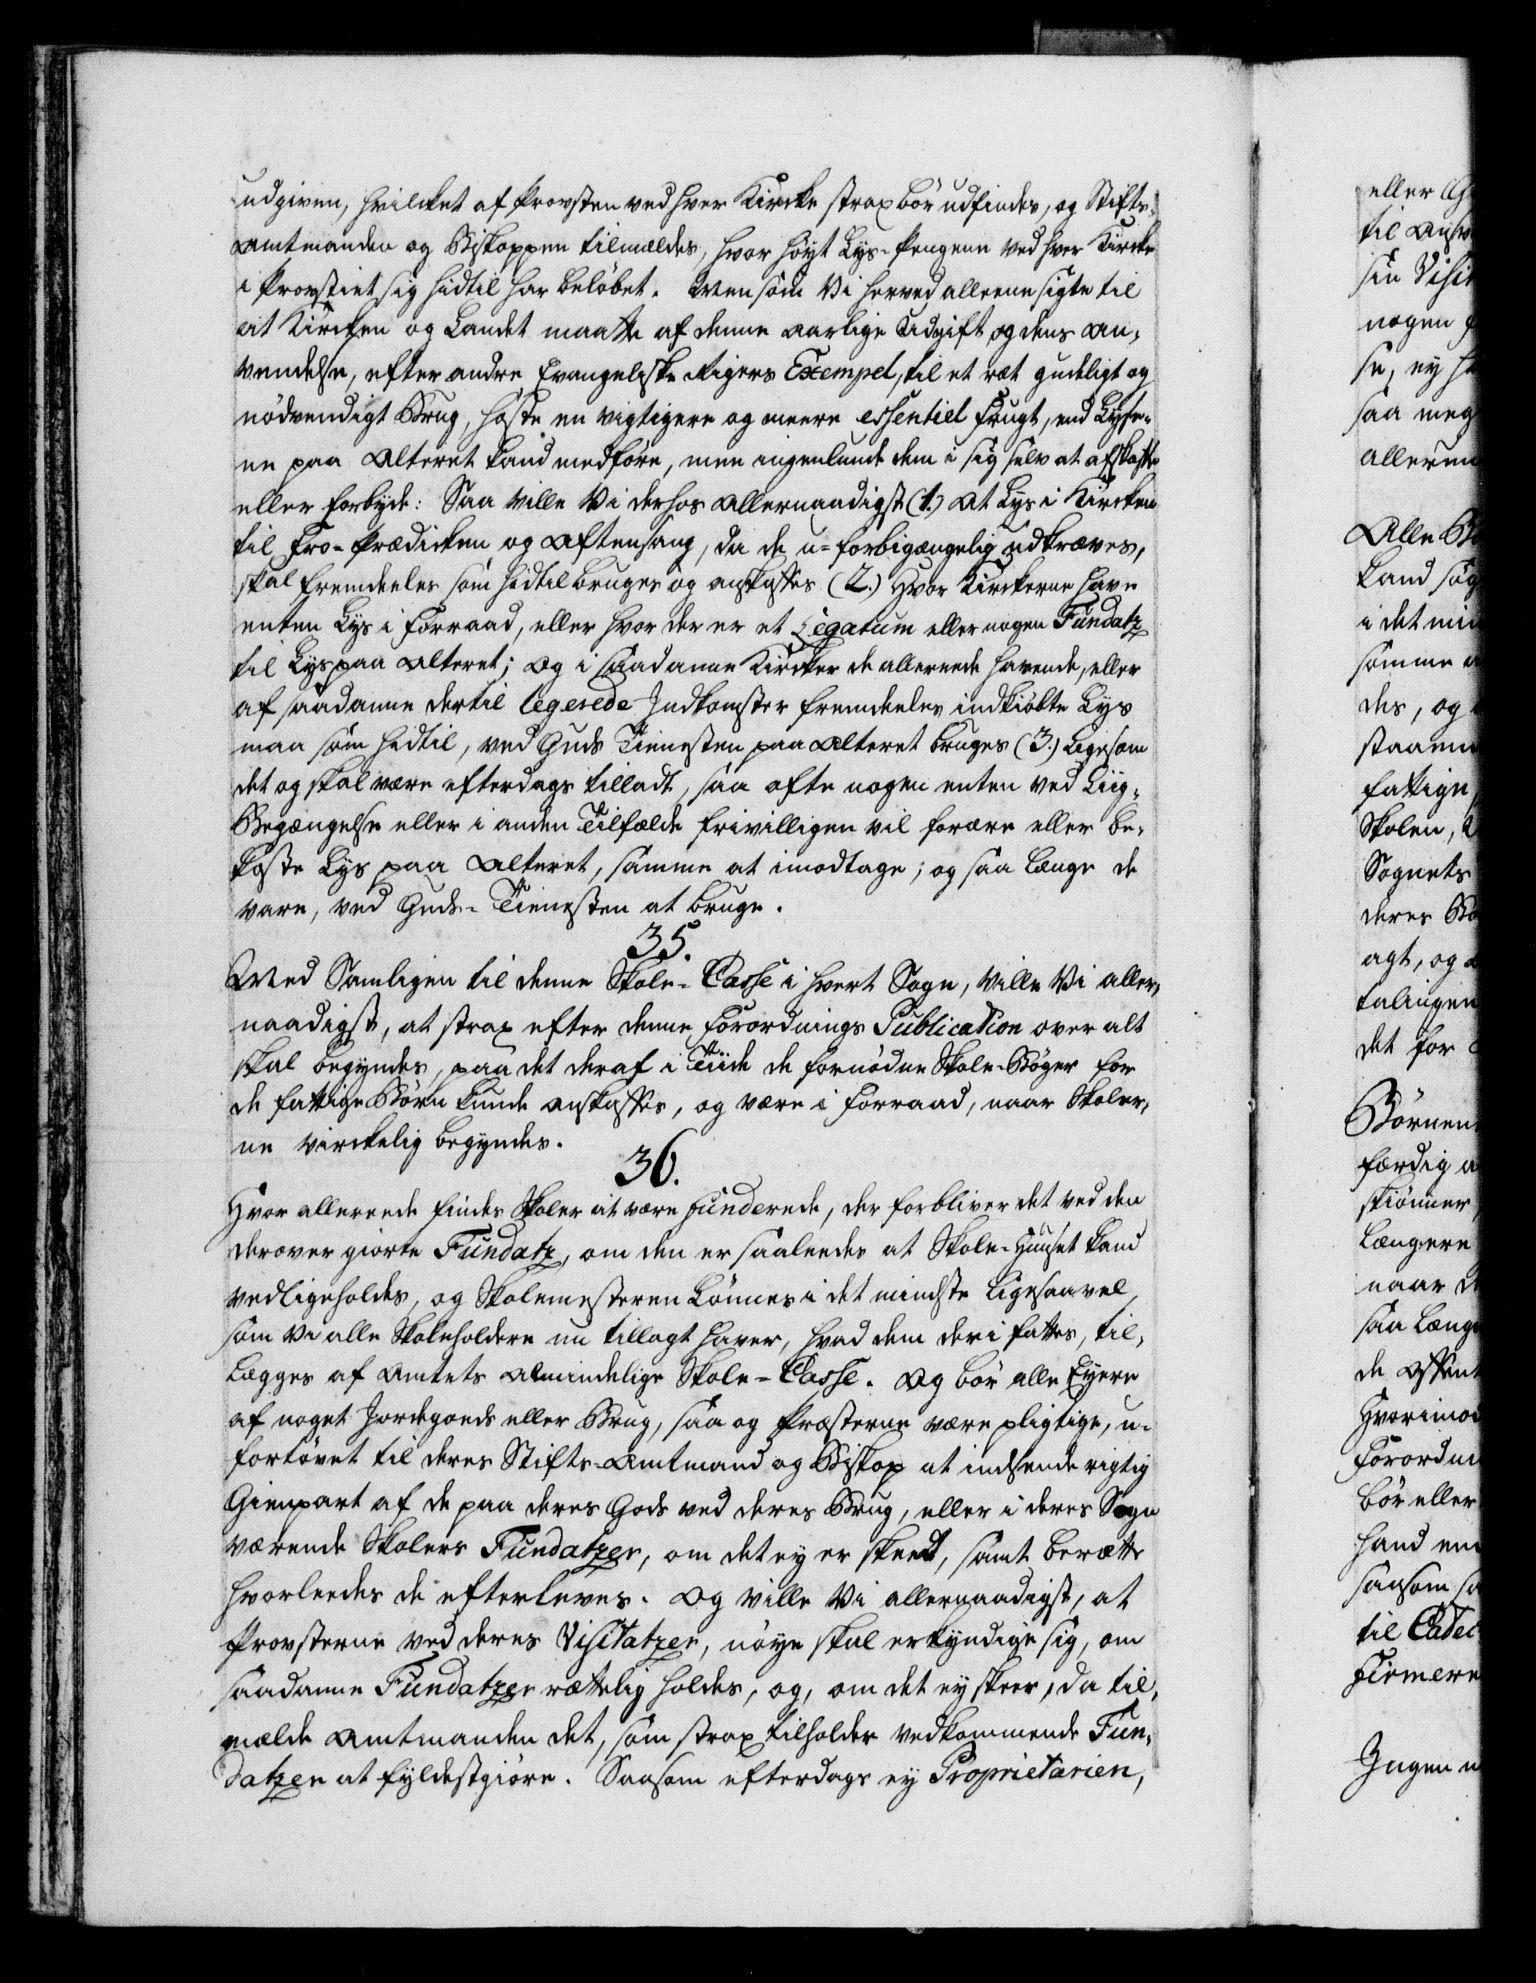 udgiven, hvilcket af Provsten ved hver Kircke strax bör udfindes, og Stifts-
amtmanden og Biskoppen tilmældes, hvor höyt Lys-Pengene ved hver Kircke
i Provstiet sig hidtil har belöbet. Men som Vi herved alleene sigte til
at Kircken og Landet maatte af denne aarlige Udgift og dens an-
vendelse, efter andre Evangeliske Rigers Exempel, til et ræt gudeligt og
nödvendigt Brug, höste en vigtigere og meere essentiel Frugt, end Lyse-
ne paa Alteret kand medföre, men ingenlunde dem i sig selv at afskaffe
eller forbyde: Saa ville Vi derhos allernaadigst (1.) At Lys i Kircken
til Fro-Prædicken og Aftensang, da de u-forbigængelig udkræves,
skal fremdeeles som hidtil bruges og anskaffes (2.) Hvor Kirckerne have
enten Lys i Forraad, eller hvor der er et Legatum eller nogen Fundatz
til Lys paa Alteret; og i saadanne Kircker de allereede havende, eller
af saadanne dertil legerede Indkomster fremdeeles indkiöbte Lys
maa som hidtil, ved Guds Tienesten paa Alteret bruges (3.) Ligesom
det og skal være efterdags tilladt, saa ofte nogen enten ved Liig-
Begængelse eller i anden Tilfælde frivilligen vil forære eller be-
koste Lys paa Alteret, samme at imodtage; og saa længe de
vare, ved Guds-Tienesten at bruge.
35.
Med Samligen til denne Skole-Casse i hvert Sogn, ville Vi aller-
naadigst, at strax efter denne Forordnings Publication over alt
skal begyndes, paa det deraf i Tiide de fornödne Skole-Böger for
de fattige Börn kunde anskaffes, og være i Forraad, naar Skoler-
ne virckelig begyndes.
36.
Hvor allereede findes Skoler at være funderede, der forbliver det ved den
derover giorte Fundatz, om den er saaleedes at Skole-Huuset kand
vedligeholdes, og Skolemesteren lönnes i det mindste ligesaavel,
som Vi alle Skoleholdere nu tillagt haver, hvad dem deri fattes, til-
lægges af Amtets almindelige Skole-Casse. Og bör alle Eyere
af noget Jordegoeds eller Brug, saa og Præsterne være pligtige, u-
fortövet til deres Stifts-Amtmand og Biskop at indsende rigtig
Gienpart af de paa deres Gods ved deres Brug, eller i deres Sogn
værende Skolers Fundatzer, om det ey er skeedt, samt berætte
hvorleedes de efterleves. Og ville Vi allernaadigst, at
Provsterne ved deres Visitatzer, nöye skal erkyndige sig, om
saadanne Fundatzer rættelig holdes, og, om det ey skeer, da til-
mælde Amtmanden det, som strax tilholder vedkommende Fun-
datzen at fyldestgiöre. Saasom efterdags ey Proprietarien,
eller
til
sin Visit
nogen
se, ey
saa meg
allerun
Alle
kand sög
i det min
samme
des, og
staaend
fattige
Skolen,
Sognets
deres
agt, og
talingen
det for
Börnene
færdig
skiönner
længere
naar
saa længe
de
Hvorimod
Forordni
bör eller
hand
saasom
til Catec
firmere
Ingen